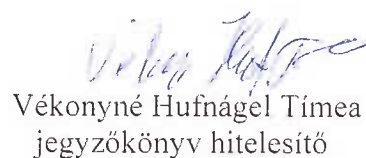 Vékonyné Hufnágel Tímea
jegyzőkönyv hitelesítő